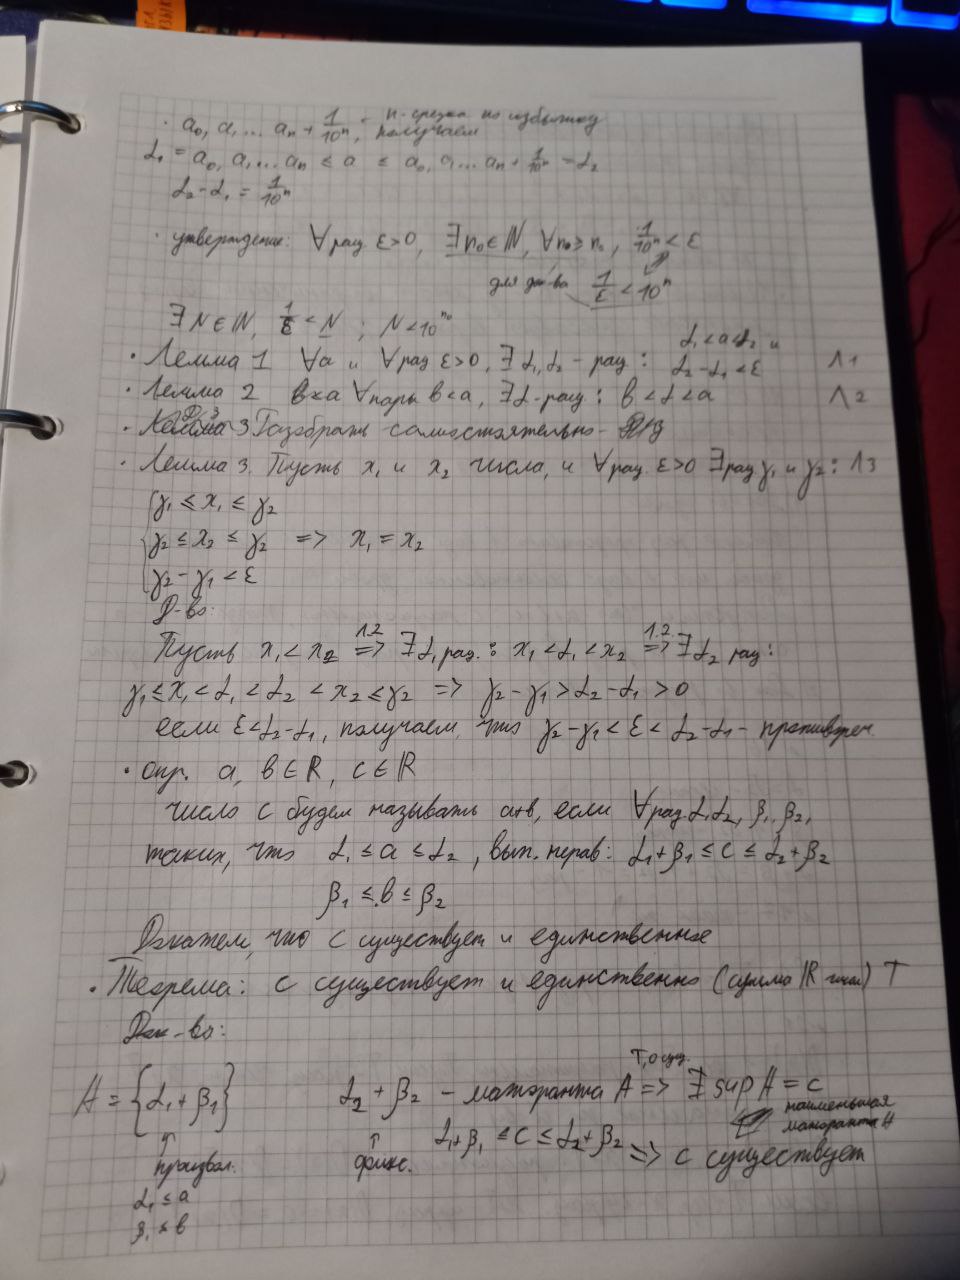 · a₀, a₁... aₙ + 1/10ⁿ - n-срезка по избытку
получаем
α₁ = a₀, a₁... aₙ ≤ a ≤ a₀, a₁... aₙ + 1/10ⁿ = α₂
α₂ - α₁ = 1/10ⁿ
· утверждение: ∀ рац. ε>0, ∃ n₀ ∈ ℕ, ∀n ≥ n₀, 1/10ⁿ < ε
для д-ва 1/ε < 10ⁿ
∃ N ∈ ℕ, 1/ε < N ; N < 10ⁿ⁰
· Лемма 1 ∀a и ∀ рац ε>0, ∃ α₁, α₂ - рац : α₁ < a < α₂ и α₂ - α₁ < ε Λ1
· Лемма 2 ∀ пары b < a, ∃ α - рац : b < α < a Λ2
· Разобрать самостоятельно -
· Лемма 3. Пусть x₁ и x₂ числа, и ∀ рац. ε>0 ∃ рац γ₁ и γ₂ : Λ3
γ₁ ≤ x₁ ≤ γ₂
γ₂ ≤ x₂ ≤ γ₂ => x₁ = x₂
γ₂ - γ₁ < ε
Д-во:
Пусть x₁ < x₂ =>(Л.2) ∃ α₁ рац. : x₁ < α₁ < x₂ =>(Л.2) ∃ α₂ рац :
γ₁ ≤ x₁ < α₁ < α₂ < x₂ ≤ γ₂ => γ₂ - γ₁ > α₂ - α₁ > 0
если ε < α₂ - α₁, получаем, что γ₂ - γ₁ < ε < α₂ - α₁ - противореч.
· опр. a, b ∈ ℝ, c ∈ ℝ
число c будем называть a+b, если ∀ рац. α₁ α₂, β₁, β₂,
таких, что α₁ ≤ a ≤ α₂, вып. нерав: α₁ + β₁ ≤ c ≤ α₂ + β₂
β₁ ≤ b ≤ β₂
Докажем, что c существует и единственное
· Теорема: c существует и единственно (сумма ℝ чисел) Т
Док-во:
A = {α₁ + β₁} α₂ + β₂ - мажоранта A =>(Т, о сущ.) ∃ sup A = c
наименьшая
мажоранта A
↑ произвол. ↑ фикс. α₁ + β₁ ≤ c ≤ α₂ + β₂ => c существует
α₁ ≤ a
β₁ ≤ b